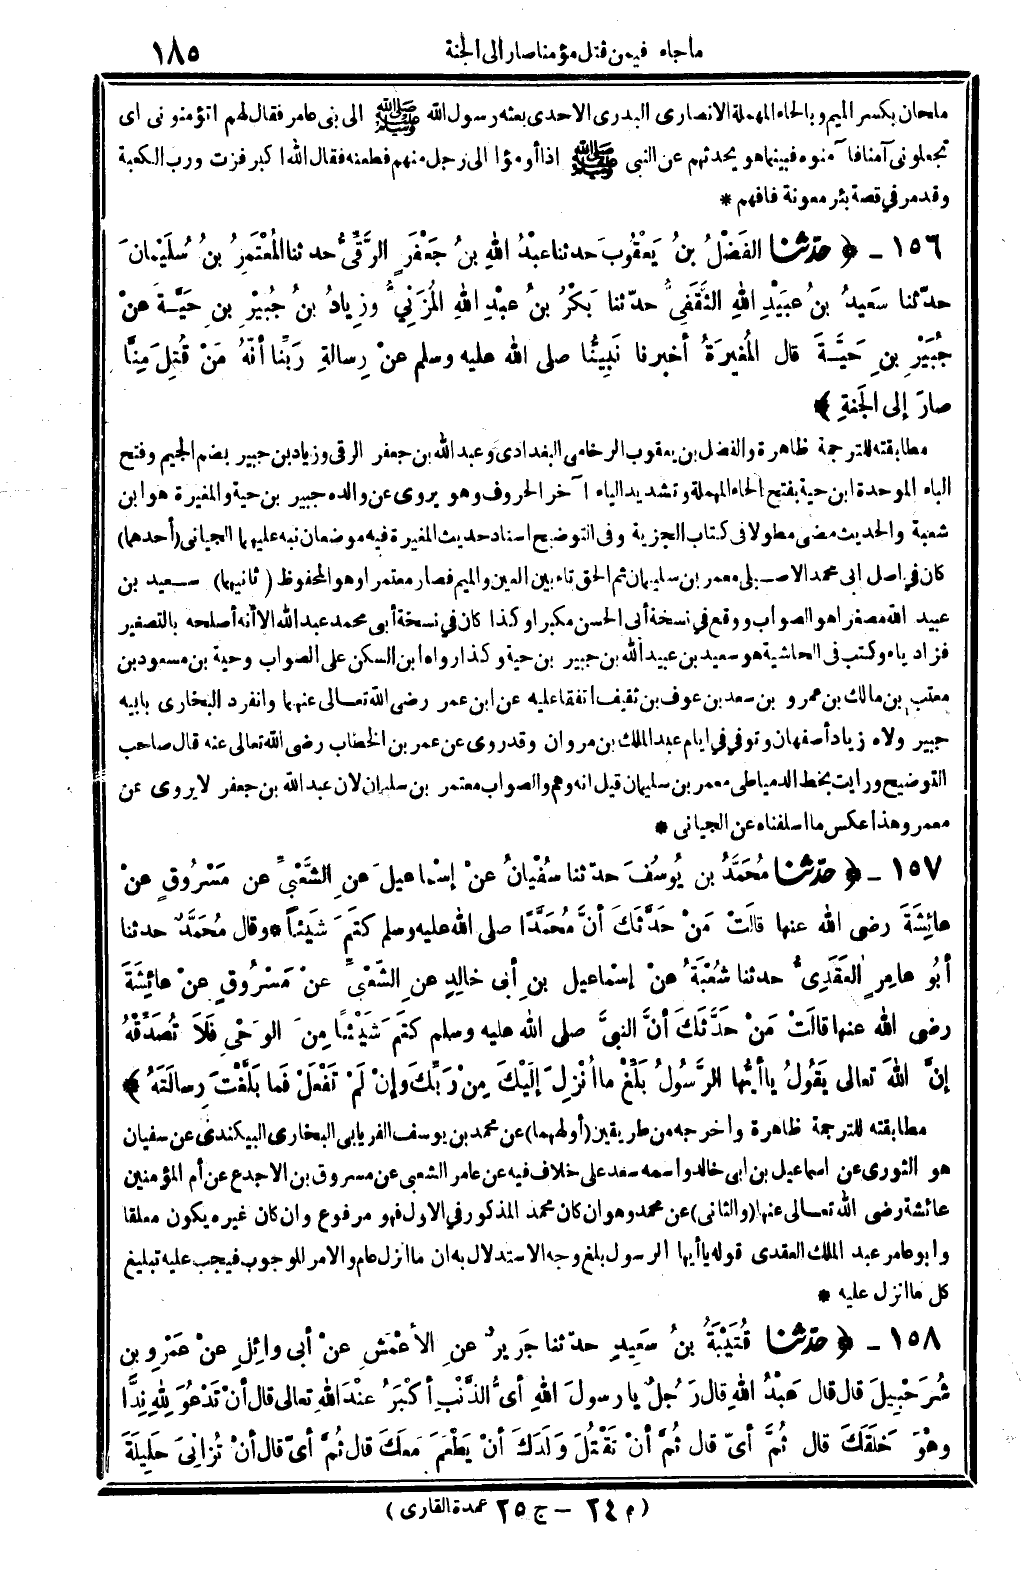 ماجاء فيمن قتل مؤمنا صار الى الجنة ١٨٥
ملحان بكسر الميم وبالحاء المهملة الانصارى البدرى الاحدى بعثه رسول الله ﷺ الى بنى عامر فقال لهم اتؤمنونى اى
تجعلونى آمنا فآمنوه فبينما هو يحدثهم عن النبى ﷺ اذا أومؤا الى رجل منهم فطعنه فقال الله اكبر فزت ورب الكعبة
وقد مر في قصة بئر معونة فافهم *
١٥٦ - ﴿ حَدَّثنا الفَضْلُ بنُ يَعْقُوبَ حدثنا عبْدُ اللهِ بنُ جَعْفَرٍ الرَّقِّىُّ حدثنا المُعْتَمِرُ بنُ سُلَيْمانَ
حدّثنا سَعِيدُ بنُ عبَيْدِ اللهِ الثَّقَفِىُّ حدّثنا بَكْرُ بنُ عبْدِ اللهِ المُزَنِيُّ وزِيادُ بنُ جُبَيْرِ بنِ حَيَّةَ عنْ
جُبَيْرِ بنِ حَيَّةَ قال المُغِيرَةُ أخبرنا نَبِيُّنا صلى الله عليه وسلم عنْ رِسالةِ رَبِّنا أنَّهُ مَنْ قُتِلَ مِنَّا
صارَ إلى الجَنةِ ﴾
مطابقته للترجمة ظاهرة والفضل بن يعقوب الرخامى البغدادى وعبد الله بن جعفر الرقى وزياد بن جبير بضم الجيم وفتح
الباء الموحدة ابن حية بفتح الحاء المهملة وتشديد الياء آخر الحروف وهو يروى عن والده جبير بن حية والمغيرة هو ابن
شعبة والحديث مضى مطولا فى كتاب الجزية وفى التوضيح اسناد حديث المغيرة فيه موضعان نبه عليهما الجيانى (أحدهما)
كان في اصل ابى محمد الاصيلى معمر بن سليمان ثم الحق تاء بين العين والميم فصار معتمرا وهو المحفوظ (ثانيهما) سعيد بن
عبيد الله مصغرا هو الصواب ووقع في نسخة أبى الحسن مكبرا وكذا كان في نسخة أبى محمد عبد الله الا أنه أصلحه بالتصغير
فزاد ياء وكتب فى الحاشية هو سعيد بن عبيد الله بن جبير بن حية وكذا رواه ابن السكن على الصواب وحية بن مسعود بن
معتب بن مالك بن عمرو بن سعد بن عوف بن ثقيف اتفقا عليه عن ابن عمر رضى الله تعالى عنهما وانفرد البخارى بابيه
جبير ولاه زياد أصفهان وتوفي في ايام عبد الملك بن مروان وقد روى عن عمر بن الخطاب رضى الله تعالى عنه قال صاحب
التوضيح ورايت بخط الدمياطى معمر بن سليمان قيل انه وهم والصواب معتمر بن سليمان لان عبد الله بن جعفر لا يروى عن
معمر وهذا عكس ما اسلفناه عن الجيانى *
١٥٧ - ﴿ حَدَّثنا مُحَمَّدُ بن يُوسُفَ حدّثنا سفْيانُ عنْ إسْماعيلَ عنِ الشَّعْبِىِّ عن مَسْرُوقٍ عنْ
عائِشَةَ رضى الله عنها قالَتْ مَنْ حَدَّثَكَ أنَّ مُحَمَّدًا صلى الله عليه وسلم كَتَمَ شَيْئاً * وقال مُحَمَّدٌ حدثنا
أبُو عامِرٍ العَقَدِىُّ حدثنا شُعْبَةُ عنْ إسْماعيل بنِ أبى خالِدٍ عنِ الشَّعْبِىِّ عنْ مَسْرُوقٍ عنْ عائِشَةَ
رضى الله عنها قالَتْ مَنْ حَدَّثَكَ أنَّ النبىَّ صلى الله عليه وسلم كَتَمَ شَيْئًا مِنَ الوَحْىِ فَلَا تُصَدِّقْهُ
إنَّ اللهَ تعالى يَقُولُ ياأيُّها الرَّسُولُ بَلِّغْ ما اُنْزِلَ إلَيْكَ مِنْ رَبِّكَ وإنْ لَمْ تَفْعَلْ فَما بَلَّغْتَ رِسالَتَهُ ﴾
مطابقته للترجمة ظاهرة وأخرجه من طريقين (أولهما) عن محمد بن يوسف الفريابى البخارى البيكندى عن سفيان
هو الثورى عن اسماعيل بن ابى خالد واسمه سعد على خلاف فيه عن عامر الشعبى عن مسروق بن الاجدع عن أم المؤمنين
عائشة رضى الله تعالى عنها (والثانى) عن محمد وهو ان كان محمد المذكور في الاول فهو مرفوع وان كان غيره يكون معلقا
وابو عامر عبد الملك العقدى قوله ياأيها الرسول بلغ وجه الاستدلال به ان ما انزل عام والامر للوجوب فيجب عليه تبليغ
كل ما انزل عليه *
١٥٨ - ﴿ حَدَّثنا قُتَيْبَةُ بنُ سَعِيدٍ حدّثنا جَرِيرٌ عنِ الأعْمَشِ عنْ أبى وائِلٍ عنْ عَمْرِو بنِ
شُرَحْبِيلَ قال قال عَبْدُ اللهِ قال رَجُلٌ يا رسولَ اللهِ أىُّ الذَّنْبِ أكْبَرُ عنْدَ اللهِ تعالى قال أنْ تَدْعُوَ لِلّهِ نِدًّا
وهْوَ خَلَقَكَ قال ثُمَّ أىّ قال ثُمَّ أنْ تَقْتُلَ وَلَدَكَ أنْ يَطْعَمَ مَعَكَ قال ثُمَّ أىّ قال أنْ تُزانِىَ حَلِيلَةَ
(م ٢٤ - ج ٢٥ عمدة القارى)